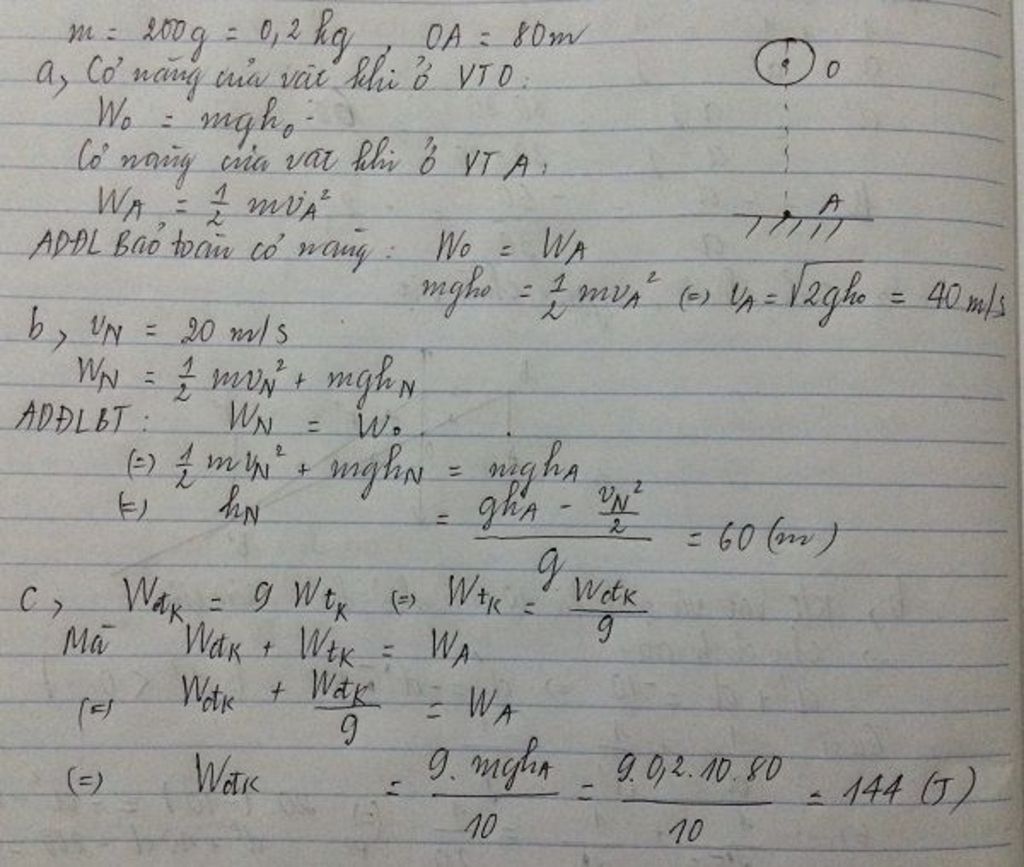 m = 200g = 0,2 kg , OA = 80m
a, Cơ năng của vật khi ở VTO:
W₀ = mgh₀
Cơ năng của vật khi ở VT A:
W_A = 1/2 mv_A²
ADĐL Bảo toàn cơ năng: W₀ = W_A
mgh₀ = 1/2 mv_A² (=) v_A = √2gh₀ = 40 m/s
b, v_N = 20 m/s
W_N = 1/2 mv_N² + mgh_N
ADĐLBT: W_N = W₀
(=) 1/2 mv_N² + mgh_N = mgh_A
(=) h_N = (gh_A - v_N²/2)/g = 60 (m)
C, Wđ_K = 9 Wt_K (=) Wt_K = Wđ_K/9
Mà Wđ_K + Wt_K = W_A
(=) Wđ_K + Wđ_K/9 = W_A
(=) Wđ_K = 9.mgh_A/10 = 9.0,2.10.80/10 = 144 (J)
O
A